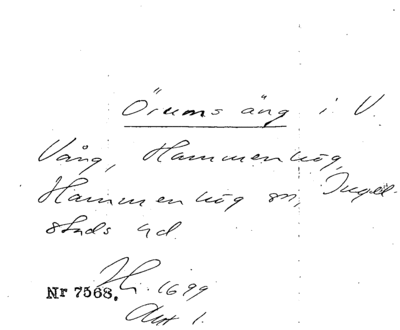 Örums äng i V.
Vång, Hammenhög,
Hammenhög sn, Ingel-
stads hd.
1699
Nr 7568.
Akt 1.